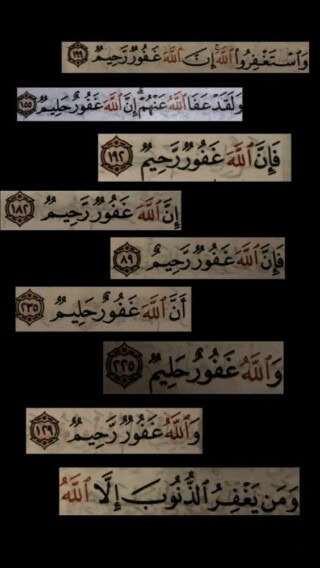 وَاسْتَغْفِرُوا۟ ٱللَّهَ ۚ إِنَّ ٱللَّهَ غَفُورٌ رَّحِيمٌ ١٩٩
وَلَقَدْ عَفَا ٱللَّهُ عَنْهُمْ ۗ إِنَّ ٱللَّهَ غَفُورٌ حَلِيمٌ ١٥٥
فَإِنَّ ٱللَّهَ غَفُورٌ رَّحِيمٌ ١٩٢
إِنَّ ٱللَّهَ غَفُورٌ رَّحِيمٌ ١٨٢
فَإِنَّ ٱللَّهَ غَفُورٌ رَّحِيمٌ ٨٩
أَنَّ ٱللَّهَ غَفُورٌ حَلِيمٌ ٢٣٥
وَٱللَّهُ غَفُورٌ حَلِيمٌ ٢٢٥
وَٱللَّهُ غَفُورٌ رَّحِيمٌ ١٢٩
وَمَن يَغْفِرُ ٱلذُّنُوبَ إِلَّا ٱللَّهُ